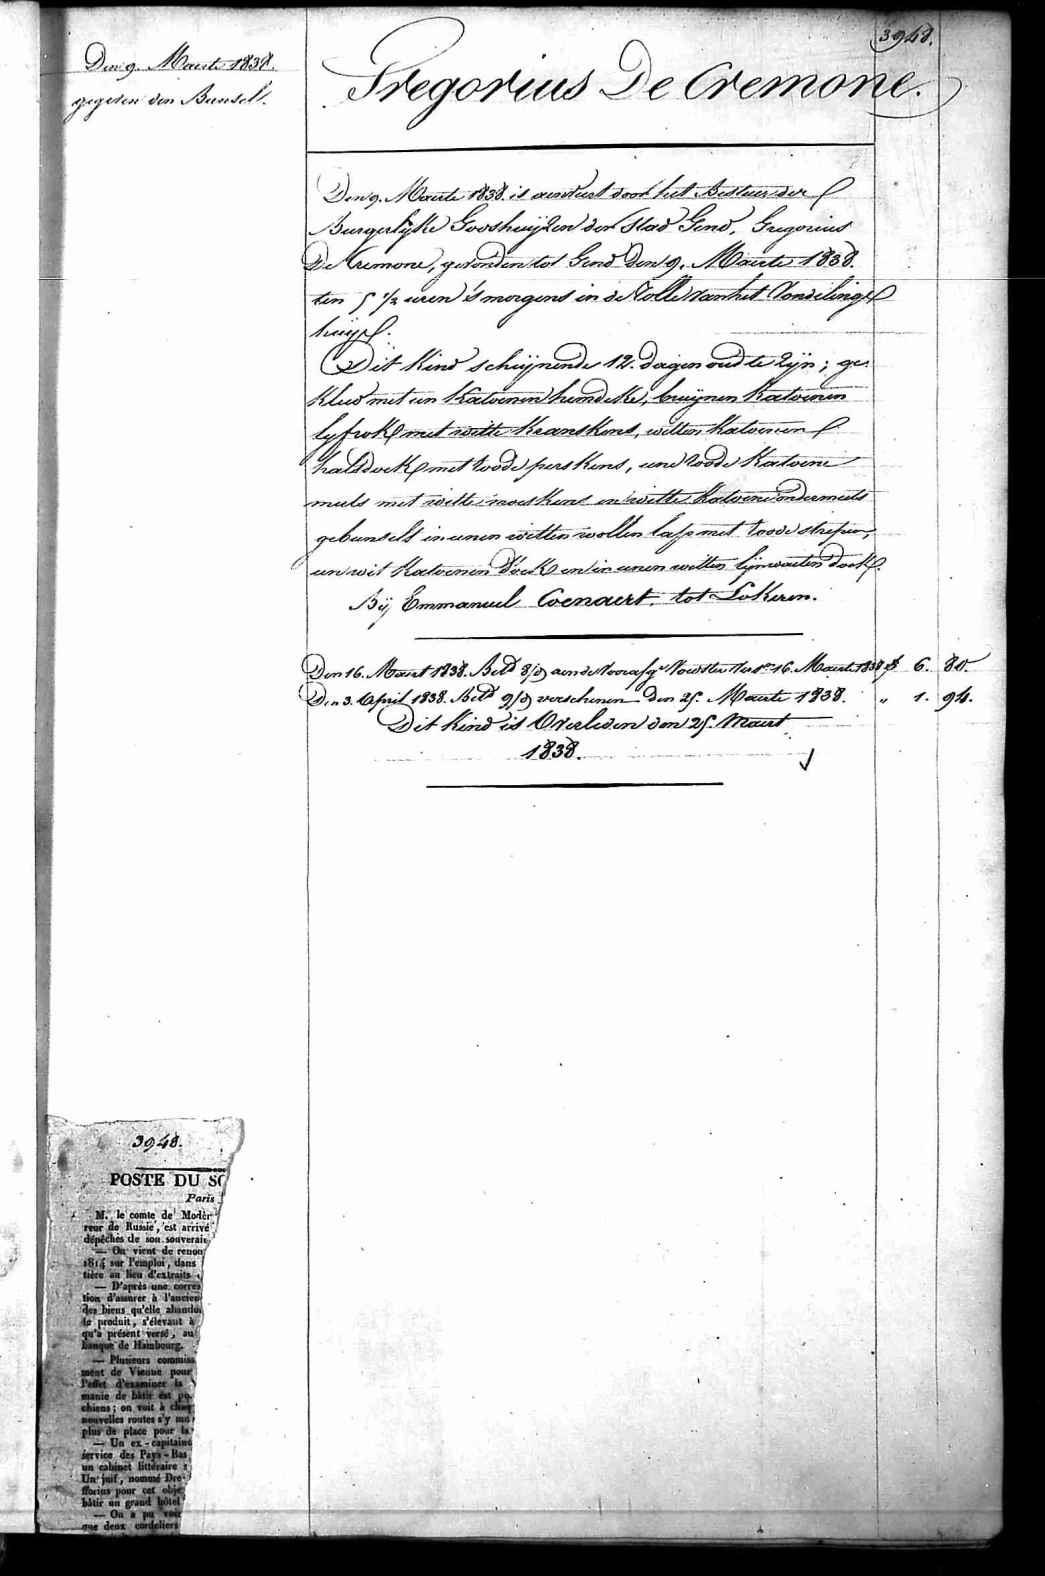 3948.
Den 9. Maerte 1838.
gegeven den Bunsel.
Gregorius De Cremone.
Den 9. Maerte 1838. is aenveert door het Bestuer der
Burgerlyke Godshuijzen der Stad Gend, Gregorius
De Cremone, gevonden tot Gend den 9. Maerte 1838.
ten 5 1/2 uren 's morgens in de Rolle van het Vondelings
huijs.
Dit Kind schijnende 12. dagen oud te zijn; ge
kleed met een Katoenen hemdeke, bruijnen Katoenen
lyfrok met witte Kranskens, witten Katoenen
halsdoek met roode perskens, eene roode Katoene
muts met witte moeskens en witte Katoene ondermuts
gebunseld in eenen witten wollen lap met roode strepen,
een wit Katoenen doek en in eenen witten lijnwaeten doek.
Bij Emmanuel Coenaert. tot Lokeren.
Den 16. Maert 1838. Betd 8/d aen de Voorzsge Voedster Vers. 16. Maerte 1838 f 6. 80.
Den 3. April 1838. Betd 9/d verschenen den 25. Maerte 1838. " 1. 94.
Dit Kind is Overleden den 25. Maert
1838.
3948.
POSTE DU SO
Paris
M. le comte de Modèr
reur de Russie, est arrivé
dépêches de son souverain
— On vient de renou
1814 sur l'emploi, dans
tière au lieu d'extraits
— D'après une corres
tion d'assurer à l'ancien
des biens qu'elle abandon
le produit, s'élevant à
qu'à présent versé, au
banque de Hambourg.
— Plusieurs commiss
ment de Vienne pour
l'effet d'examiner la
manie de bâtir est po
chiens; on voit à chaq
nouvelles routes s'y mu
plus de place pour la
— Un ex-capitaine
service des Pays-Bas
un cabinet littéraire
Un juif, nommé Dre
florins pour cet obje
bâtir un grand hôtel
— On a pu voir
que deux cordeliers